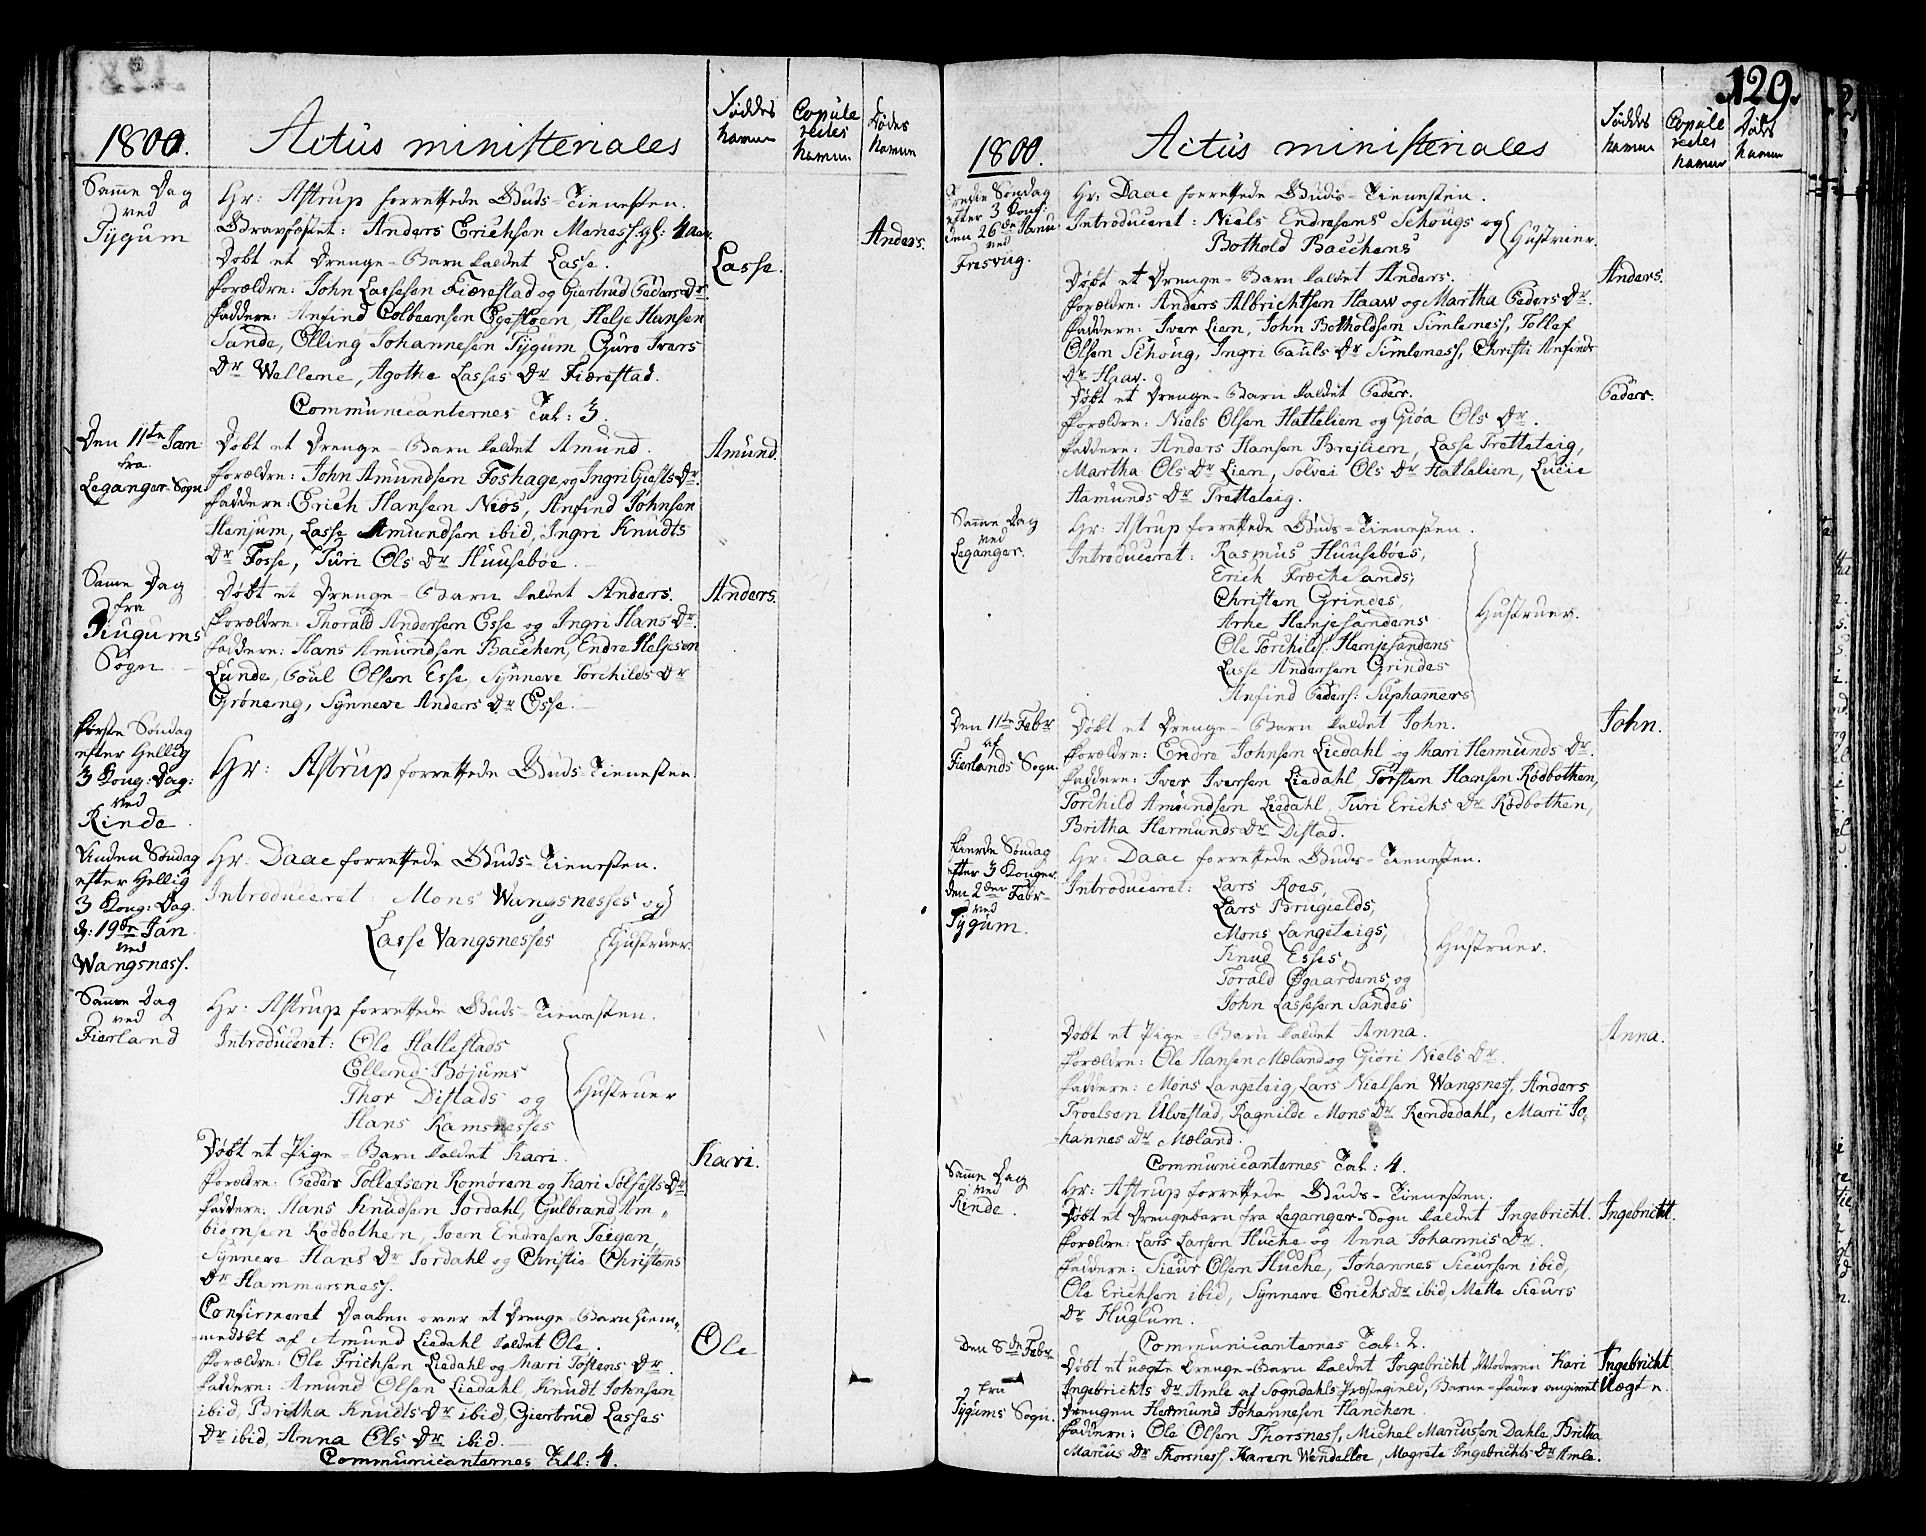 1800.
Actus ministeriales
Føddes
Navne
Copule
redes
Navne
Dødes
Navne
Same Dag
ved
Tygum
Hr: Astrup forrettede Guds-Tienesten.
Gravfæstet: Anders Erichsen Menes: gl: 4 aar.
Anders.
Døbt et Drenge-Barn kaldet Lasse.
Lasse.
Forældre: John Lassesen Fiærestad og Giertrud Peders Dr.
Faddere: Anfind Colbeensen Eggestøen, Helje Hansen
Sande, Elling Johannesen Tygum, Guro Ivers
Dr Wellene, Agothe Lasses Dr Fiærestad.
Communicanternes Tal: 3.
Den 11te Jan
fra
Leganger Sogn
Døbt et Drenge-Barn kaldet Amund.
Amund.
Forældre: John Amundsen Foshage og Ingri Giests Dr.
Faddere: Erich Hansen Niøs, Anfind Johnsen
Henjum, Lasse Amundsen ibid, Ingri Knudts
Dr Fosse, Turi Ols Dr Huusebøe.
Same Dag
fra
Tiugums
Sogn
Døbt et Drenge-Barn kaldet Anders.
Anders.
Forældre: Thorald Andersen Esse og Ingri Hans Dr.
Faddere: Hans Amundsen Bacchen, Endre Heljesen
Lunde, Poul Olsen Esse, Synneve Torchilds Dr
Grøneng, Synneve Anders Dr Esse.
Første Søndag
efter Hellig
3 Kong: Dag:
ved
Rinde
Hr: Astrup forrettede Guds-Tienesten
Anden Søndag
efter Hellig
3 Kong: Dag
d: 19de Jan
ved
Wangsness.
Hr: Daae forrettede Guds-Tienesten.
Introduceret: Mons Wangsnesses og
Lasse Vangsnesses
Hustruer.
Same Dag
ved
Fierland
Hr: Astrup forrettede Guds-Tienesten.
Introduceret: Ole Hattestads
Ellend Bøjums
Thor Distads og
Hans Ramsnesses
Hustruer
Døbt et Pige-Barn kaldet Kari.
Kari.
Forældre: Peder Tollefsen Romøren og Kari Solfests Dr.
Faddere: Hans Knudsen Jordahl, Gulbrand Am-
biørnsen Rødbotten, Joen Endresen Teigen,
Synneve Hans Dr Jordahl og Christie Christens
Dr Hammersness.
Confirmeret Daaben over et Drenge-Barn hiem-
medøbt af Amund Liedahl kaldet Ole.
Ole
Forældre: Ole Frichsen Liedahl og Mari Tostens Dr.
Faddere: Amund Olsen Liedahl, Knudt Johnsen
ibid, Britha Knudts Dr ibid, Giertrud Lasses
Dr ibid, Anna Ols Dr ibid.
Communicanternes Tal: 4.
129.
1800.
Actus ministeriales
Føddes
Navne
Copule
redes
Navne
Døde
Navne
Tredie Søndag
efter 3 Kong:
den 26de Janu
ved
Fresvig.
Hr: Daae forrettede Guds-Tienesten.
Introduceret: Niels Endresens Schougs og
Bothold Bacchens
Hustruer.
Døbt et Drenge-Barn kaldet Anders.
Anders.
Forældre: Anders Albrichtsen Haaw og Martha Peders Dr.
Faddere: Iver Lien, John Botholdsen Simleness, Tollef
Olsen Schoug, Ingri Pouls Dr Simleness, Christi Anfinds
Dr Haav.
Døbt et Drenge-Barn kaldet Peder.
Peder.
Forældre: Niels Olsen Hattelien og Giøa Ols Dr.
Faddere: Anders Hansen Brejlien, Lasse Tretteteig,
Martha Ols Dr Lien, Solvei Ols Dr Hattelien, Lucie
Aamunds Dr Tretteteig.
Same Dag
ved
Leganger.
Hr: Astrup forrettede Guds-Tienesten.
Introduceret: Rasmus Huusebøes,
Erich Fræchelands,
Christen Grindes,
Arne Henjesandens
Ole Torchilds: Henjesandens
Lasse Andersen Grindes
Anfind Peders: Suphamers
Hustruer.
Den 11te Febr
af
Fierlands Sogn.
Døbt et Drenge-Barn kaldet John.
John.
Forældre: Endre Johnsen Liedahl og Mari Hermunds Dr.
Faddere: Iver Iversen Liedahl, Torsten Hansen Rødbothen,
Torchild Amundsen Liedahl, Turi Erichs Dr Rødbothen,
Britha Hermunds Dr Distad.
Fierde Søndag
efter 3 Konger
den 2den Febr-
ved
Tygum.
Hr: Daae forrettede Guds-Tienesten.
Introduceret: Lars Roes,
Lars Brugields,
Mons Langeteigs,
Knud Esses,
Torald Øgaardens, og
John Lassesen Sandes
Hustruer.
Døbt et Pige-Barn kaldet Anna.
Anna.
Forældre: Ole Hansen Mæland og Giøri Niels Dr.
Faddere: Mons Langeteig, Lars Nielsen Wangsness, Anders
Troelsen Ulvestad, Ragnilde Mons Dr Rendedahl, Mari Jo-
hannes Dr Mæland.
Communicanternes Tal: 4.
Same Dag
ved
Rinde.
Hr: Astrup forrettede Guds-Tienesten.
Døbt et Drengebarn fra Leganger-Sogn kaldet Ingebricht.
Ingebricht.
Forældre: Lars Larsen Huche og Anna Johannis Dr.
Faddere: Sieur Olsen Huche, Johannes Sieursen ibid,
Ole Erichsen ibid, Synneve Erichs Dr ibid, Mette Sieurs
Dr Huglum.
Communicanternes Tal: 2.
Den 8de Febr
fra
Tygums Sogn.
Døbt et uægte Drenge-Barn kaldet Ingebricht, Moderen Kari
Ingebricht.
Ingebrichts Dr Amle af Sogndahls Præstegield, Barne-Fader angivet
Uægte.
Drengen Hermund Johannesen Hanchen.
Faddere: Ole Olsen Thorsness, Michel Marcussen Dahle, Britha
Marcus Dr Thorsness, Karen Wendelboe, Magrete Ingebrichts Dr Amle.